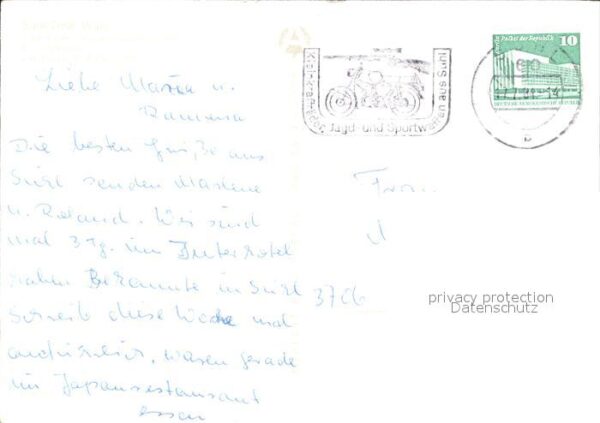 Liebe Maria u.
Ramona
Die besten Grüße aus
Suhl senden Marlene
u. Roland. Wir sind
mal 3 Tg. im Interhotel
haben Bekannte in Suhl
Schreib diese Woche mal
ausführlich, waren gerade
im Japanrestaurant
essen
Kleinkrafträder, Jagd- und Sportwaffen aus Suhl
Berlin, Palast der Republik
10
DEUTSCHE DEMOKRATISCHE REPUBLIK
Frau
3706
privacy protection
Datenschutz